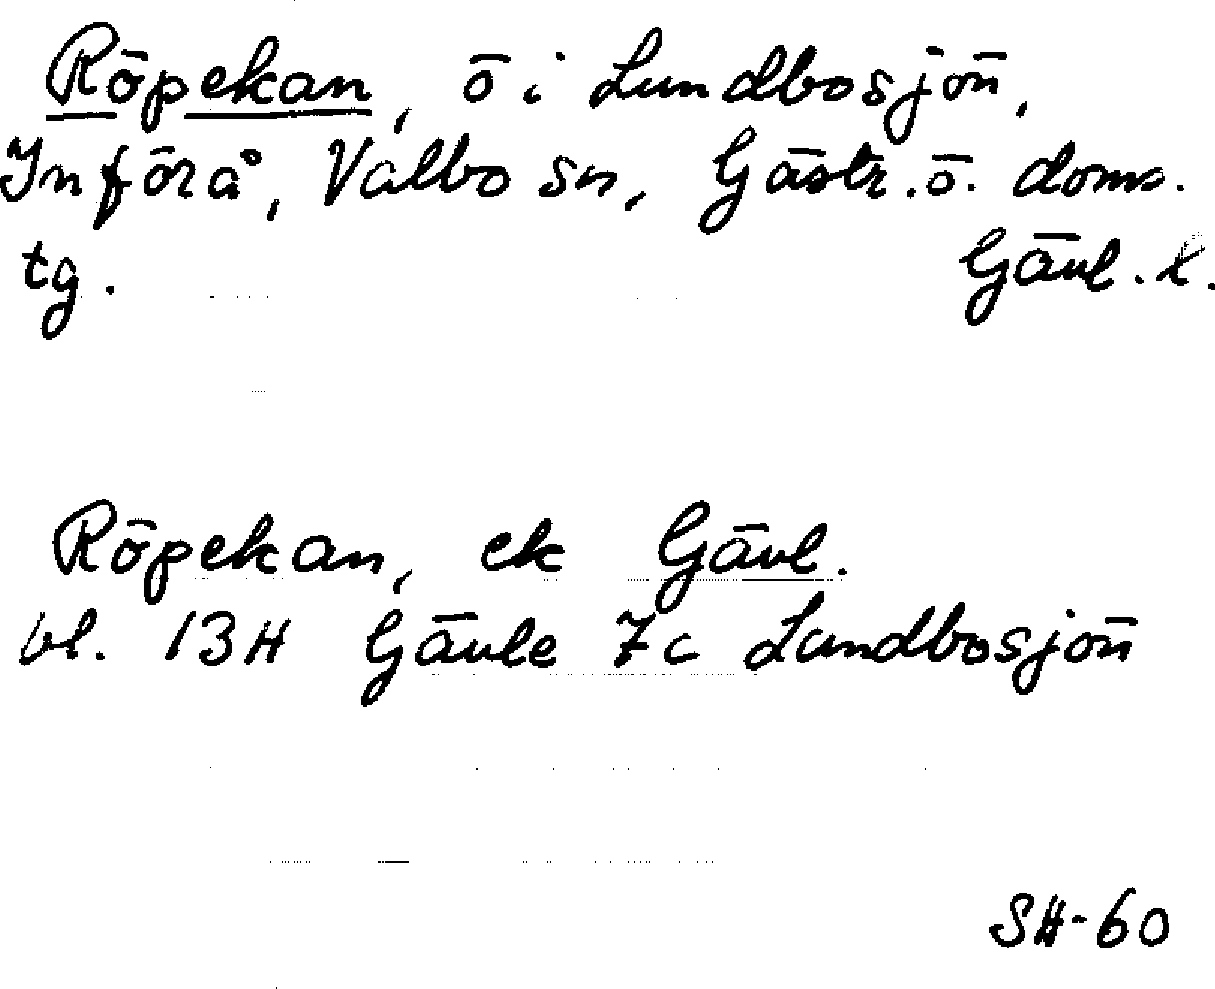 Röpekan, ö i Lundbosjön,
Införå, Valbo sn, Gästr. ö. doms.
tg. Gävl. l.
Röpekan, ek Gävl.
bl. 13H Gävle 7c Lundbosjön
SH-60